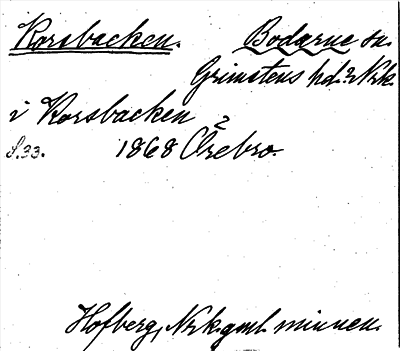 Korsbacken. Bodarne sn.
Grimstens hd. Nrk.
i Korsbacken
s. 33. 1868 Örebro.
Hofberg, Nrk. gml. minnen.